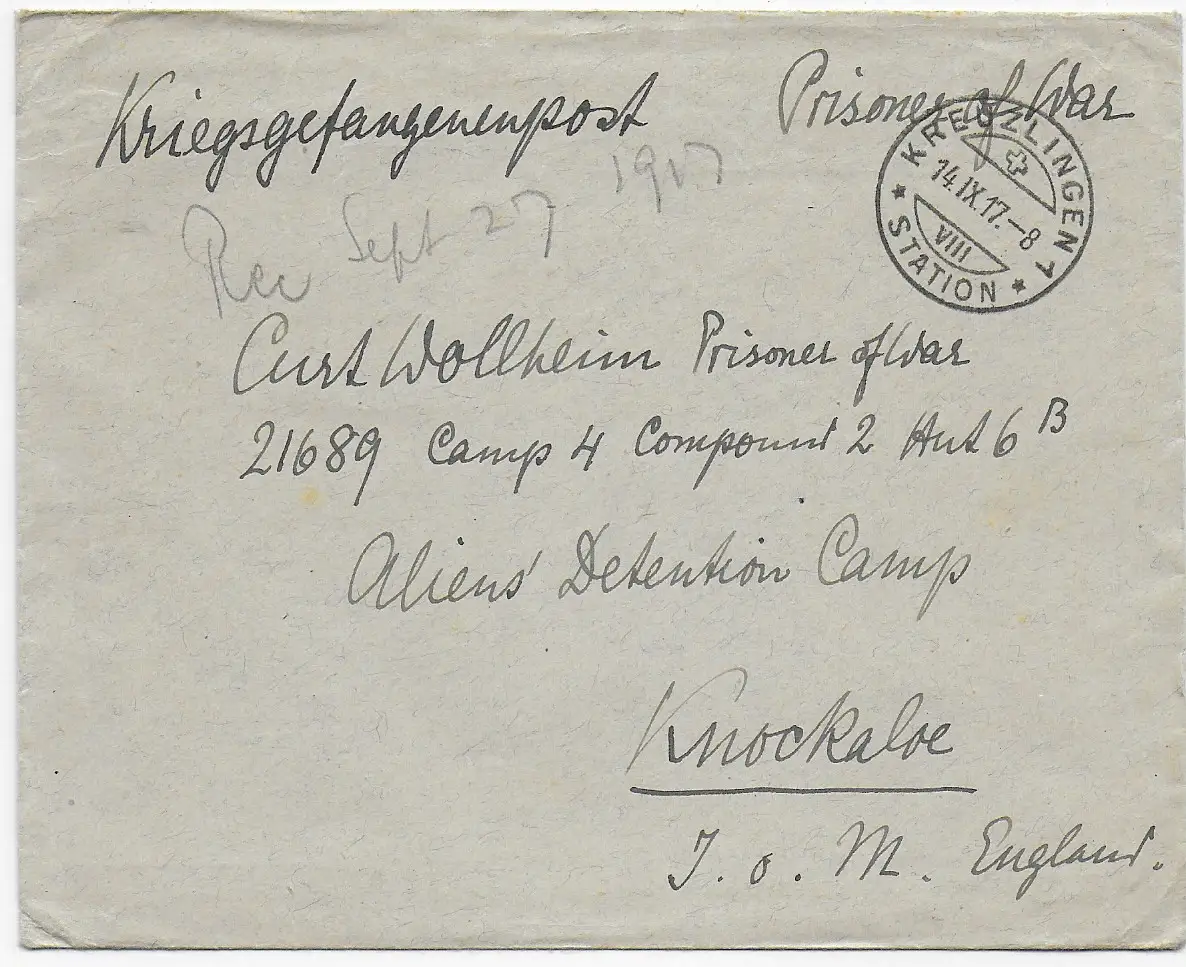 Kriegsgefangenenpost Prisoner of War
KREUZLINGEN 1
14.IX.17.–8
VIII
* STATION *
Rec Sept 27 1917
Curt Wollheim Prisoner of War
21689 Camp 4 Compound 2 Hut 6 B
Aliens' Detention Camp
Knockaloe
I. o. M. England.